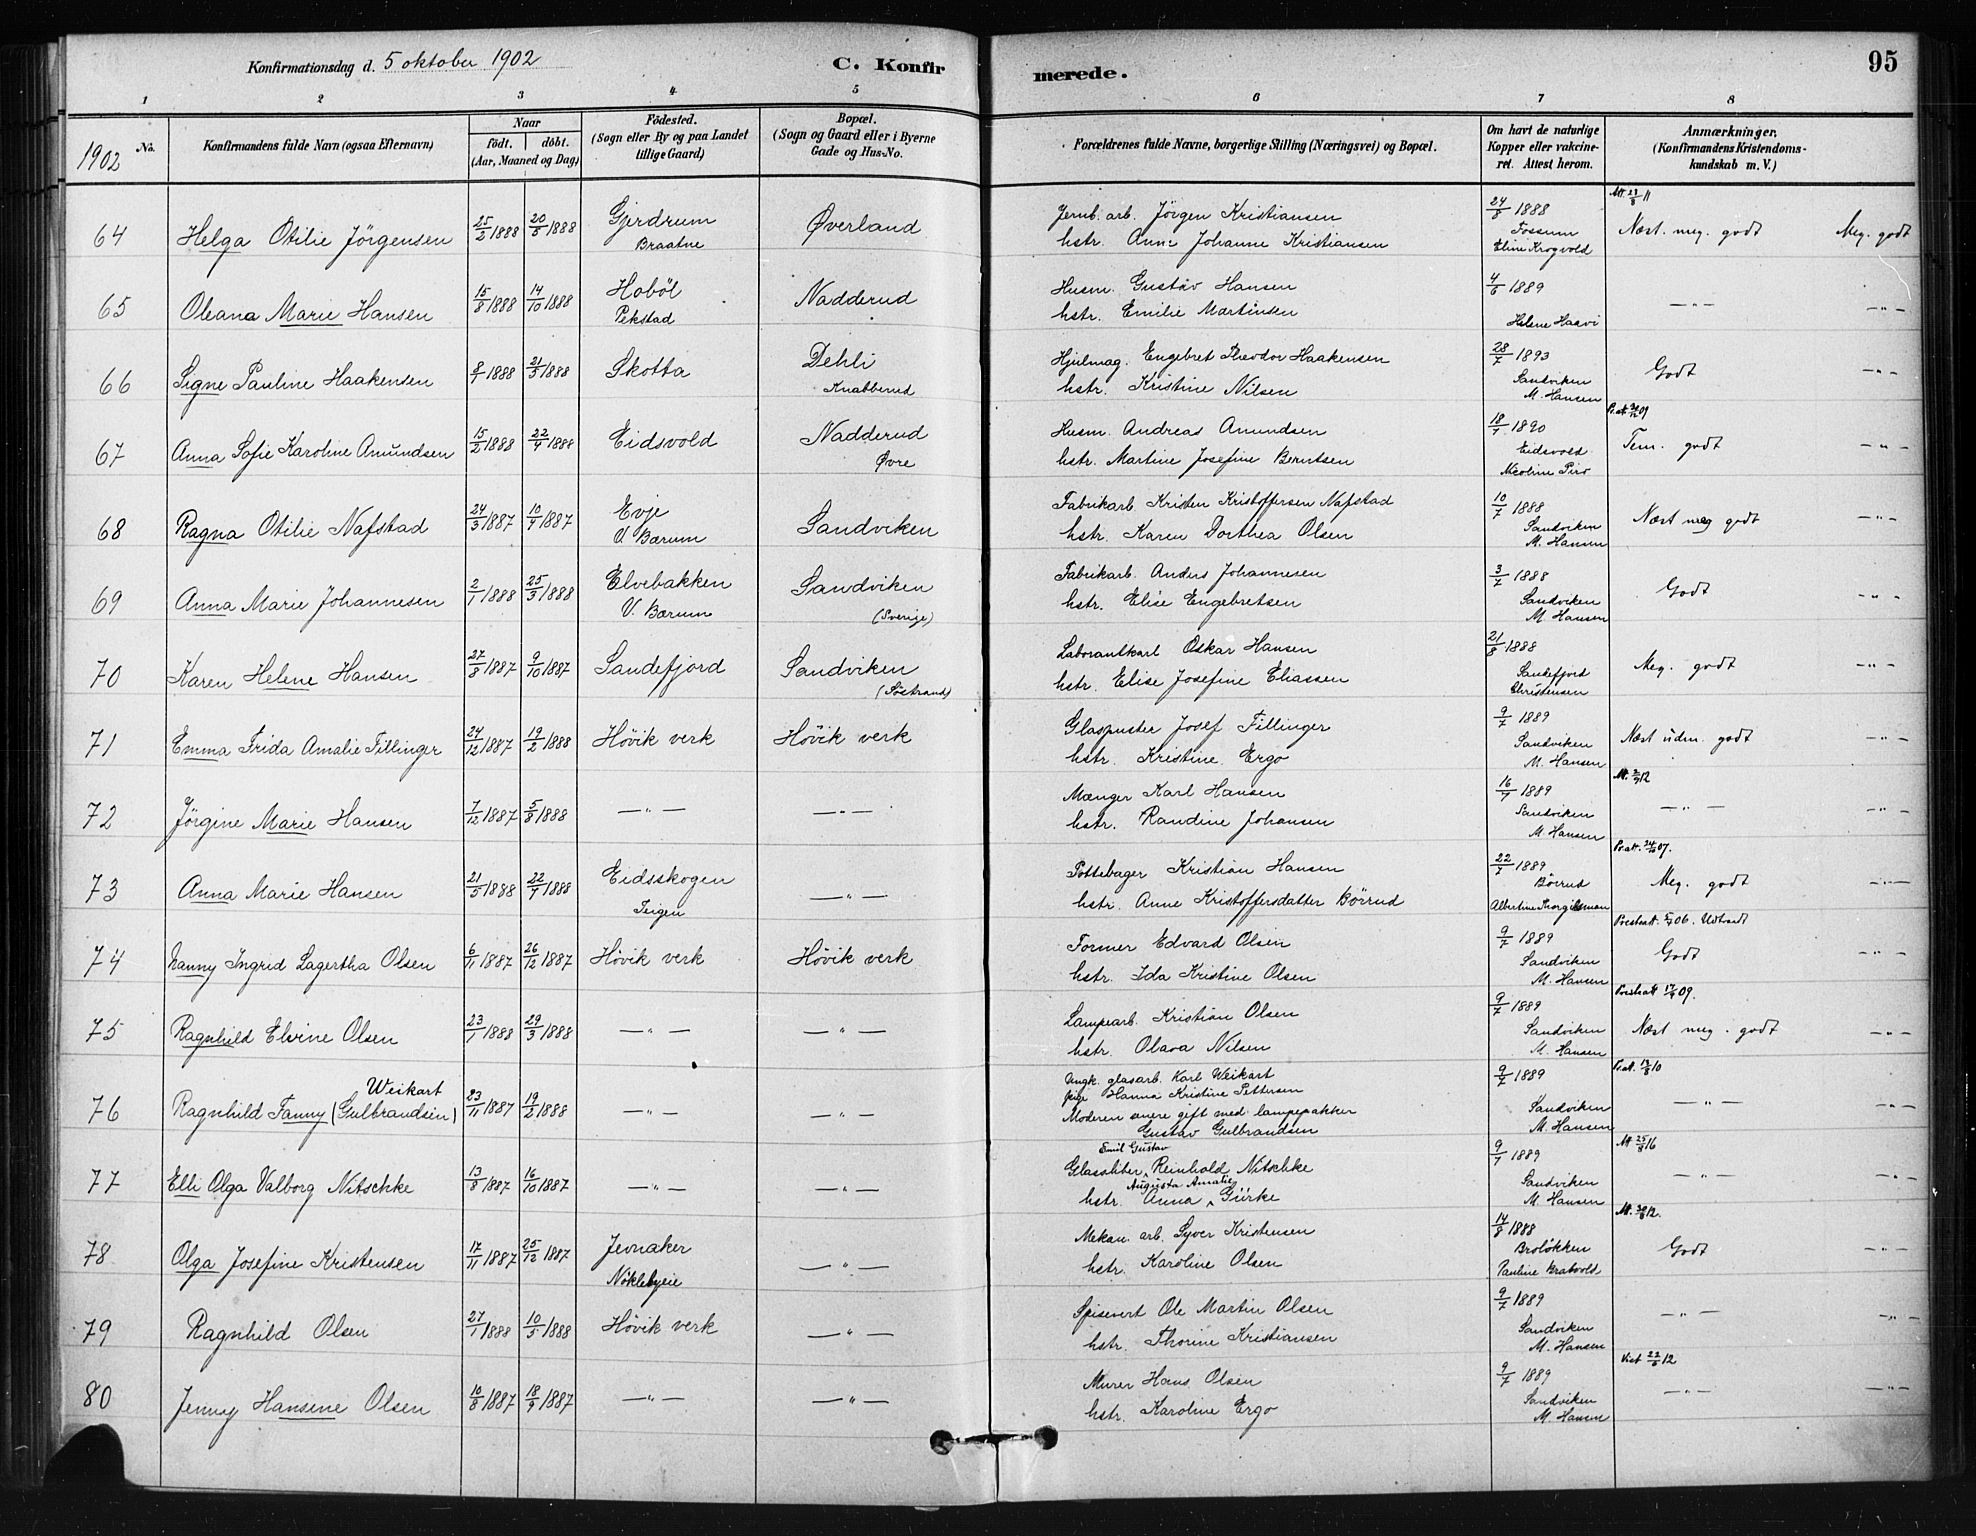 Konfirmationsdag d. 5 oktober 1902
C. Konfirmerede.
95
1 2 3 4 5 6 7 8
1902 No.
Konfirmandens fulde Navn (ogsaa Efternavn)
Naar
födt. döbt.
(Aar, Maaned og Dag)
Födested.
(Sogn eller By og paa Landet
tillige Gaard)
Bopæl.
(Sogn og Gaard eller i Byerne
Gade og Hus-No.
Forældrenes fulde Navne, borgerlige Stilling (Næringsvei) og Bopæl.
Om havt de naturlige
Kopper eller vakcine-
ret. Attest herom.
Anmærkninger,
(Konfirmandens Kristendoms-
kundskab m. V.)
64 Helga Otilie Jörgensen 25/2 1888 20/5 1888 Gjerdrum Braatne Øverland
Jernb. arb. Jörgen Kristiansen
hstr. Anne Johanne Kristiansen
24/8 1888 Fossum Eline Krogvold
Næst. meg. godt Meg. godt
65 Oleana Marie Hansen 15/8 1888 14/10 1888 Hoböl Pekstad Nadderud
Husm. Gustav Hansen
hstr. Emilie Martinsen
4/6 1889 Helene Haavi
—"— —"—
66 Signe Pauline Haakensen 8/1 1888 21/5 1888 Skotta Dehli Knabberud
Hjulmag. Engebret Theodor Haakensen
hstr. Kristine Nilsen
28/7 1893 Sandviken M. Hansen
Godt —"—
67 Anna Sofie Karoline Amundsen 15/2 1888 22/4 1888 Eidsvold Nadderud Øvre
Husm. Andreas Amundsen
hstr. Martine Josefine Berntsen
18/1 1890 Eidsvold Nicoline Piro
Tem. godt —"—
68 Ragna Otilie Nafstad 24/3 1887 10/4 1887 Evje V. Bærum Sandviken
Fabrikarb. Kristen Kristoffersen Nafstad
hstr. Karen Dorthea Olsen
10/7 1888 Sandviken M. Hansen
Næst meg godt —"—
69 Anna Marie Johannesen 2/1 1888 25/3 1888 Elvebakken V. Bærum Sandviken (Sverige)
Fabrikarb. Anders Johannesen
hstr. Elise Engebretsen
3/7 1888 Sandviken M. Hansen
Godt —"—
70 Karen Helene Hansen 27/8 1887 9/10 1887 Sandefjord Sandviken (Söstrand)
Laborantkarl Oskar Hansen
hstr. Elise Josefine Eliassen
21/8 1888 Sandefjord Christensen
Meg. godt —"—
71 Emma Frida Amalie Fillinger 24/12 1887 19/2 1888 Hövik verk Hövik verk
Glaspuster Josef Fillinger
hstr. Kristine Ergo
9/7 1889 Sandviken M. Hansen
Næst udm. godt —"—
72 Jörgine Marie Hansen 7/12 1887 5/8 1888 —"— —"—
Mænger Karl Hansen
hstr. Randine Johansen
16/7 1889 Sandviken M. Hansen
—"— —"—
73 Anna Marie Hansen 21/5 1888 22/7 1888 Eidsskogen Teigen —"—
Pottebager Kristian Hansen
hstr. Anne Kristoffersdatter Börrud
22/7 1889 Börrud Albertine
Meg. godt —"—
74 Nanny Ingrid Lagertha Olsen 6/11 1887 26/12 1887 Hövik verk Hövik verk
Former Edvard Olsen
hstr. Ida Kristine Olsen
9/7 1889 Sandviken M. Hansen
Godt —"—
75 Ragnhild Elvine Olsen 23/1 1888 29/3 1888 —"— —"—
Lampearb. Kristian Olsen
hstr. Olava Nilsen
9/7 1889 Sandviken M. Hansen
Næst meg. godt —"—
76 Ragnhild Fanny Weikart (Gulbrandsen) 23/11 1887 19/2 1888 —"— —"—
Ungk. glasarb. Karl Weikart
pige Hanna Kristine Pettersen
Moderen senere gift med lampepakker
Gustav Gulbrandsen
9/7 1889 Sandviken M. Hansen
—"— —"—
77 Elli Olga Valborg Nitschke 13/8 1887 16/10 1887 —"— —"—
Glassliber Emil Gustav Reinhold Nitschke
hstr. Anna Augusta Amalie Gürke
9/7 1889 Sandviken M. Hansen
—"— —"—
78 Olga Josefine Kristensen 17/11 1887 25/12 1887 Jevnaker Nöklebyeie —"—
Mekan. arb. Syver Kristensen
hstr. Karoline Olsen
14/8 1888 Brolökken Pauline Bratvold
Godt —"—
79 Ragnhild Olsen 27/1 1888 10/5 1888 Hövik verk —"—
Spisevert Ole Martin Olsen
hstr. Thorine Kristiansen
9/7 1889 Sandviken M. Hansen
—"— —"—
80 Jenny Hansine Olsen 10/8 1887 18/9 1887 —"— —"—
Murer Hans Olsen
hstr. Karoline Ergo
9/7 1889 Sandviken M. Hansen
—"— —"—